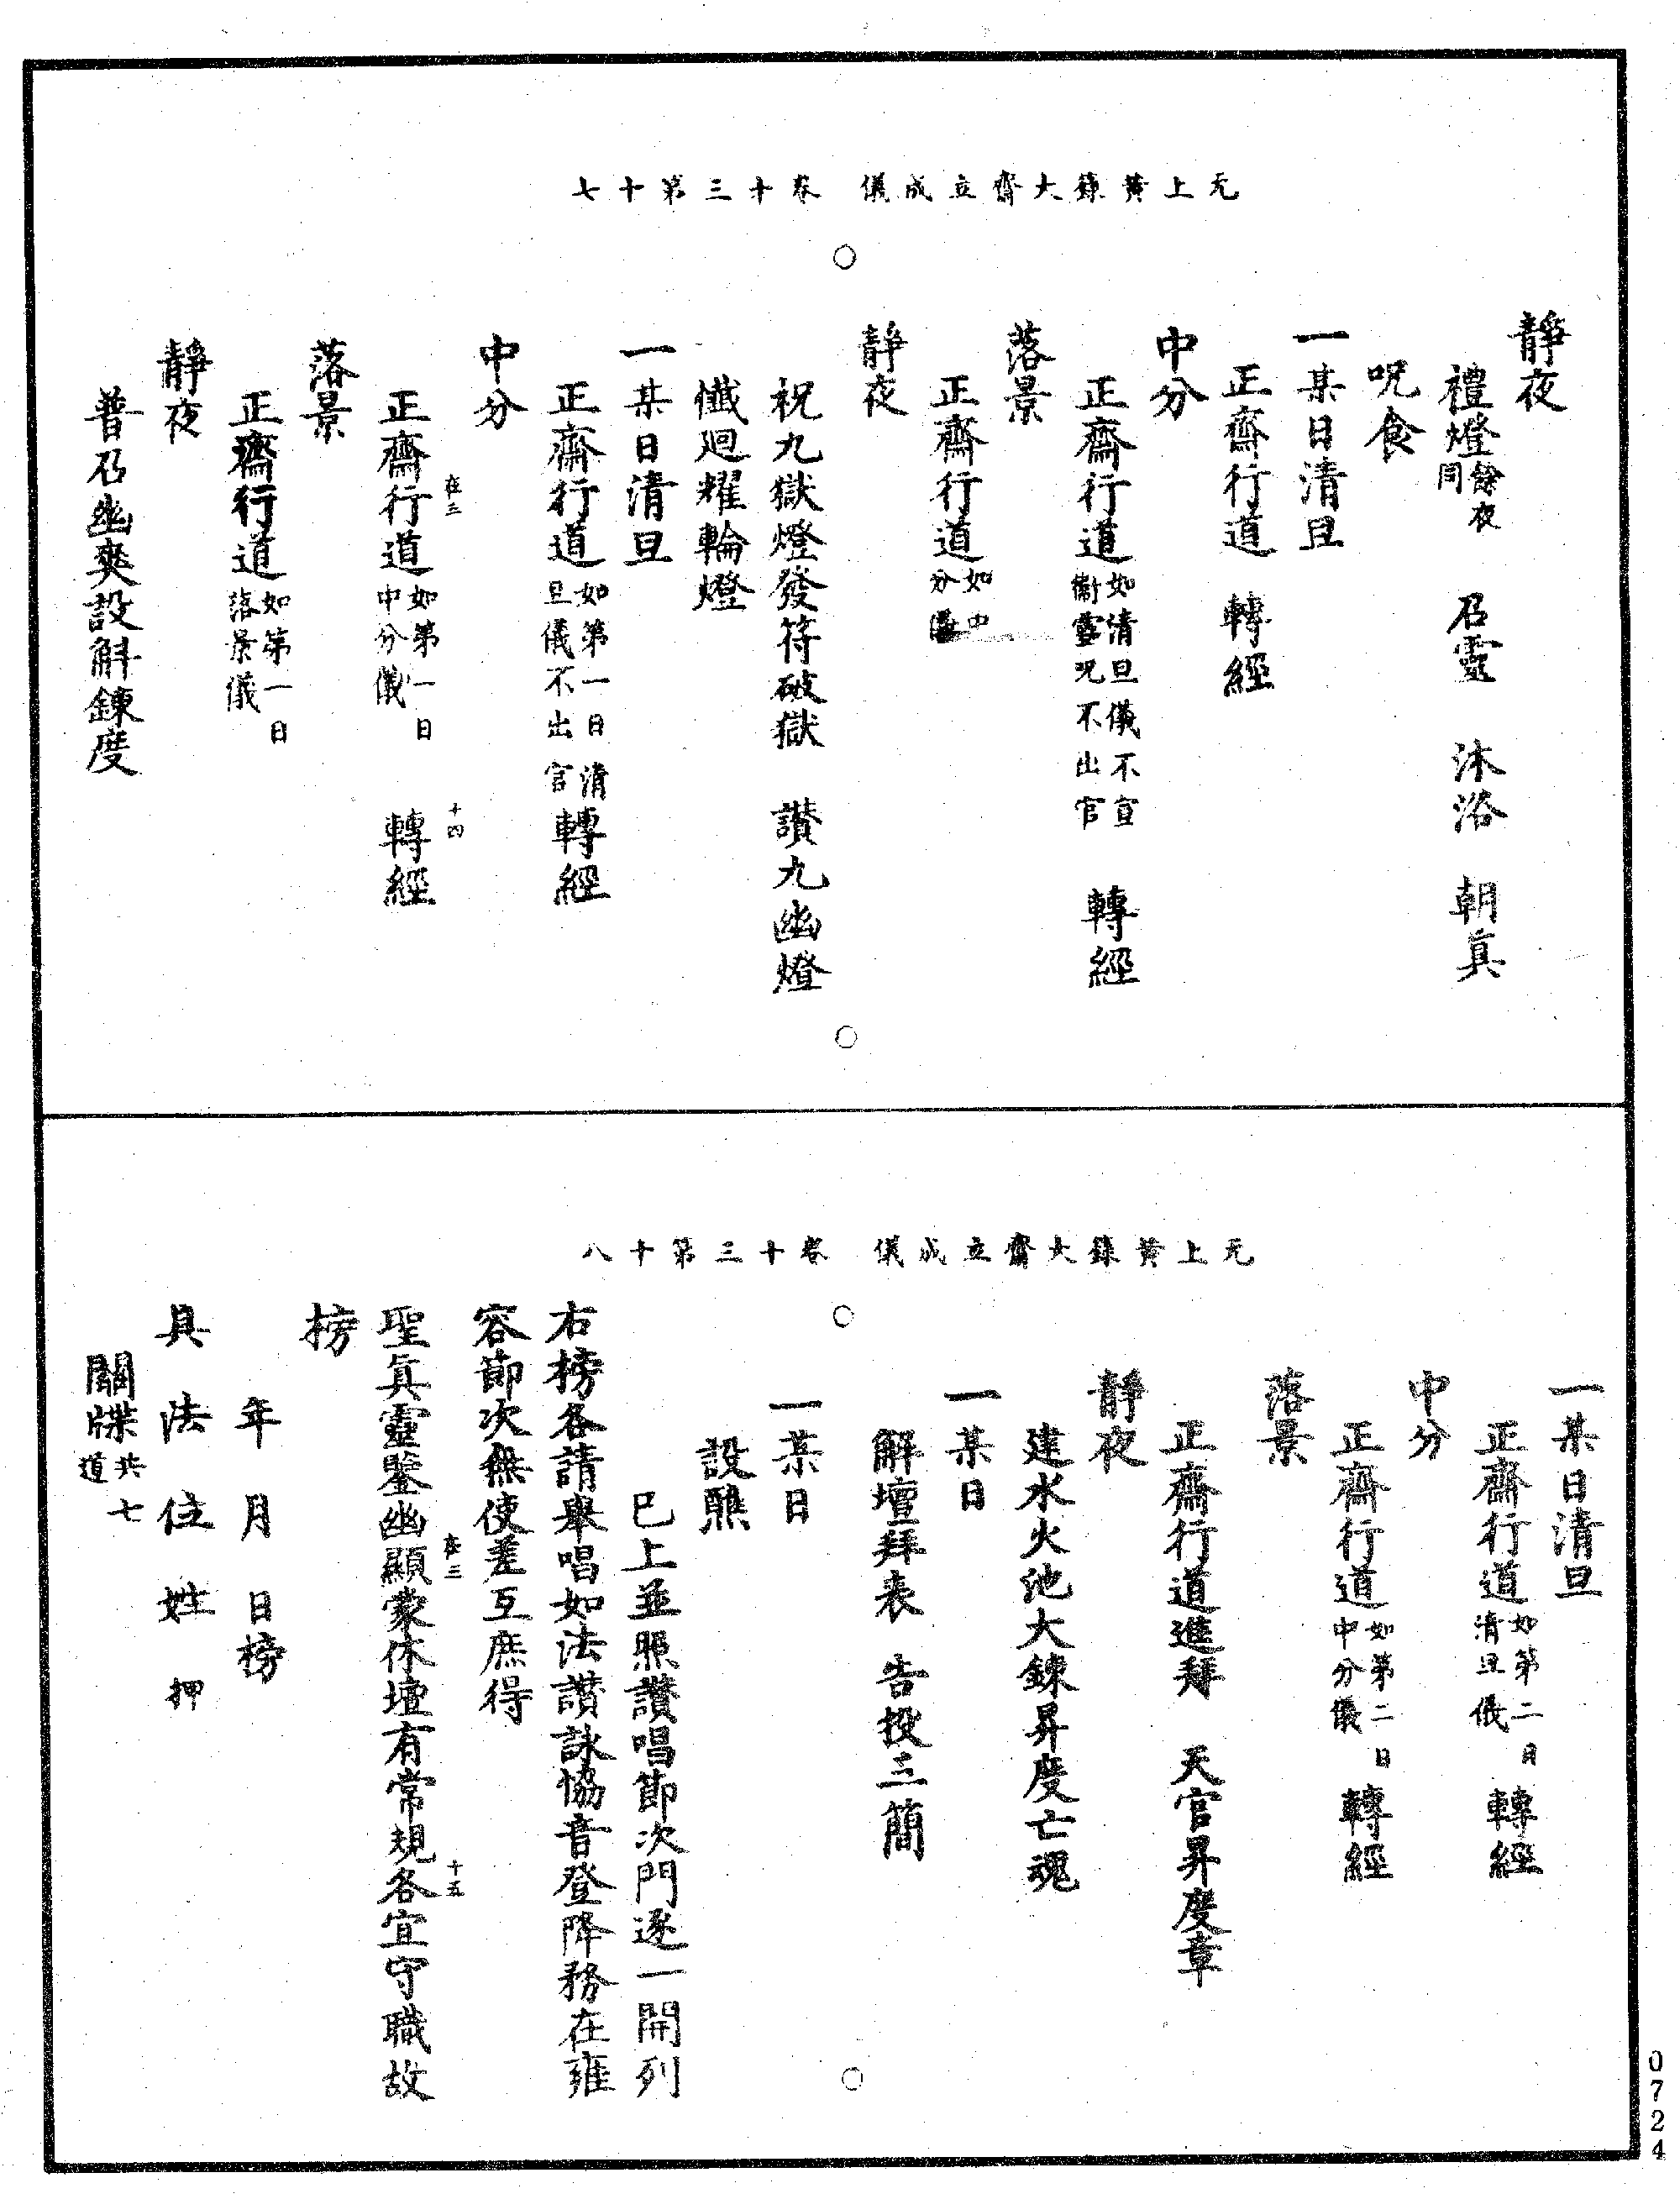 无上黃籙大齋立成儀　卷十三第十七
靜夜
禮燈餘夜同　召靈　沐浴　朝真
呪食
一某日清旦
正齋行道　轉經
中分
正齋行道如清旦儀不宣衛靈呪不出官　轉經
落景
正齋行道如中分儀
靜夜
祝九獄燈發符破獄　讚九幽燈
懺迴耀輪燈
一某日清旦
正齋行道如第一日清旦儀不出官轉經
中分
在三　十四
正齋行道如第一日中分儀　轉經
落景
正齋行道如第一日落景儀
靜夜
普召幽爽設斛鍊度
无上黃籙大齋立成儀　卷十三第十八
一某日清旦
正齋行道如第二日清旦儀轉經
中分
正齋行道如第二日中分儀轉經
落景
正齋行道進拜　天官昇度章
靜夜
建水火池大鍊昇度亡魂
一某日
解壇拜表　告投三簡
一某日
設醮
巳上並照讚唱節次門逐一開列
右榜各請舉唱如法讚詠恊音登降務在雍
容節次無使差互庶得
在三　十五
聖真靈鑒幽顯蒙休壇有常規各宜守職故
榜
年　月　日榜
具　法　位　姓　押
關牒共七道
0724